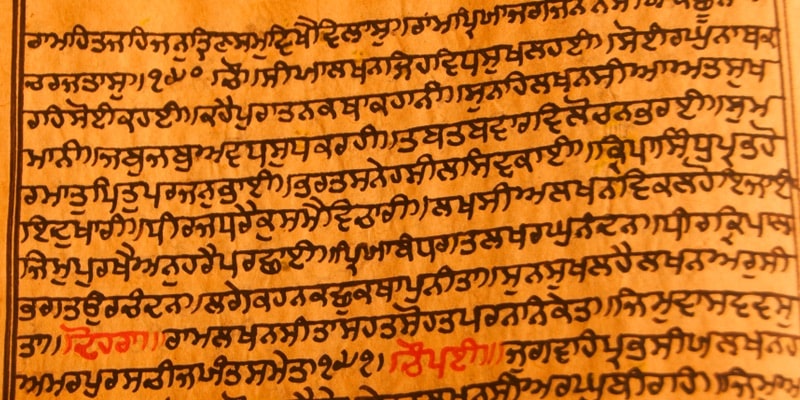 ਰਾਮਹਿਤਜਹਿਜਨੁਤ੍ਰਿਣਸਮੁਵਿਖੈਵਿਲਾਸੁ॥ਰਾਮਪ੍ਰਿਆਜਗਜਨਨਸੀਅਕਛੁਨ
ਚਰਜਤਾਸੁ॥੧੪੦ ਚੌ॥ਸੀਅਲਖਨਜਿਹਵਿਧਸੁਖਲਹਈ॥ਸੋਈਰਘੁਨਾਥਕ
ਰਹਿਸੋਈਕਹਈ॥ਕਹੈਪੁਰਾਤਨਕਥਾਕਹਾਨੀ॥ਸੁਨਹਿਲਖਨਸੀਅਅਤਸੁਖ
ਮਾਨੀ॥ਜਬੁਜਬੁਰਾਅਵਧਸੁਧਕਰਹੀ॥ਤਬਤਬਵਾਰਵਿਲੋਚਨਭਰਈ॥ਸੁਮ
ਰਮਾਤੁਪਿਤੁਪਰਜਨੁਭਾਈ॥ਭਰਤਸਨੇਹਸੀਲਸਿਵਕਾਈ॥ਕ੍ਰਿਪਾਸਿੰਧੁਪ੍ਰਭਹੋ
ਇਦੁਖਾਰੀ॥ਧੀਰਜਧਰੈਕੁਸਮੈਵਿਚਾਰੀ॥ਲਖਸੀਅਲਖਨਵਿਕਲਹੋਇਜਾਈ
ਜਿਮੁਪੁਰਖੈਅਨੁਹਰੈਪਰਛਾਈ॥ਪ੍ਰਿਆਬੰਧਗਤਲਖਰਘੁਨੰਦਨ॥ਧੀਰਕ੍ਰਿਪਾਲ
ਭਗਤਉਰਚੰਦਨ॥ਲਗੇਕਹਨਕਛੁਕਥਾਪੁਨੀਤਾ॥ਸੁਨਸੁਖਲਹੈਲਖਨਅਰੁਸੀ
ਤਾ॥ਦੋਹਰਾ॥ਰਾਮਲਖਨਸੀਤਾਸਹਤਸੋਹਤਪਰਨਨਿਕੇਤ॥ਜਿਮੁਵਾਸਵਵਸੁ
ਅਮਰਪੁਰਸਚੀਜਯੰਤਸਮੇਤ॥੧੪੧॥ਚੌਪਈ॥ਜੁਗਵਹਿਪ੍ਰਭਸੀਅਲਖਨਹ